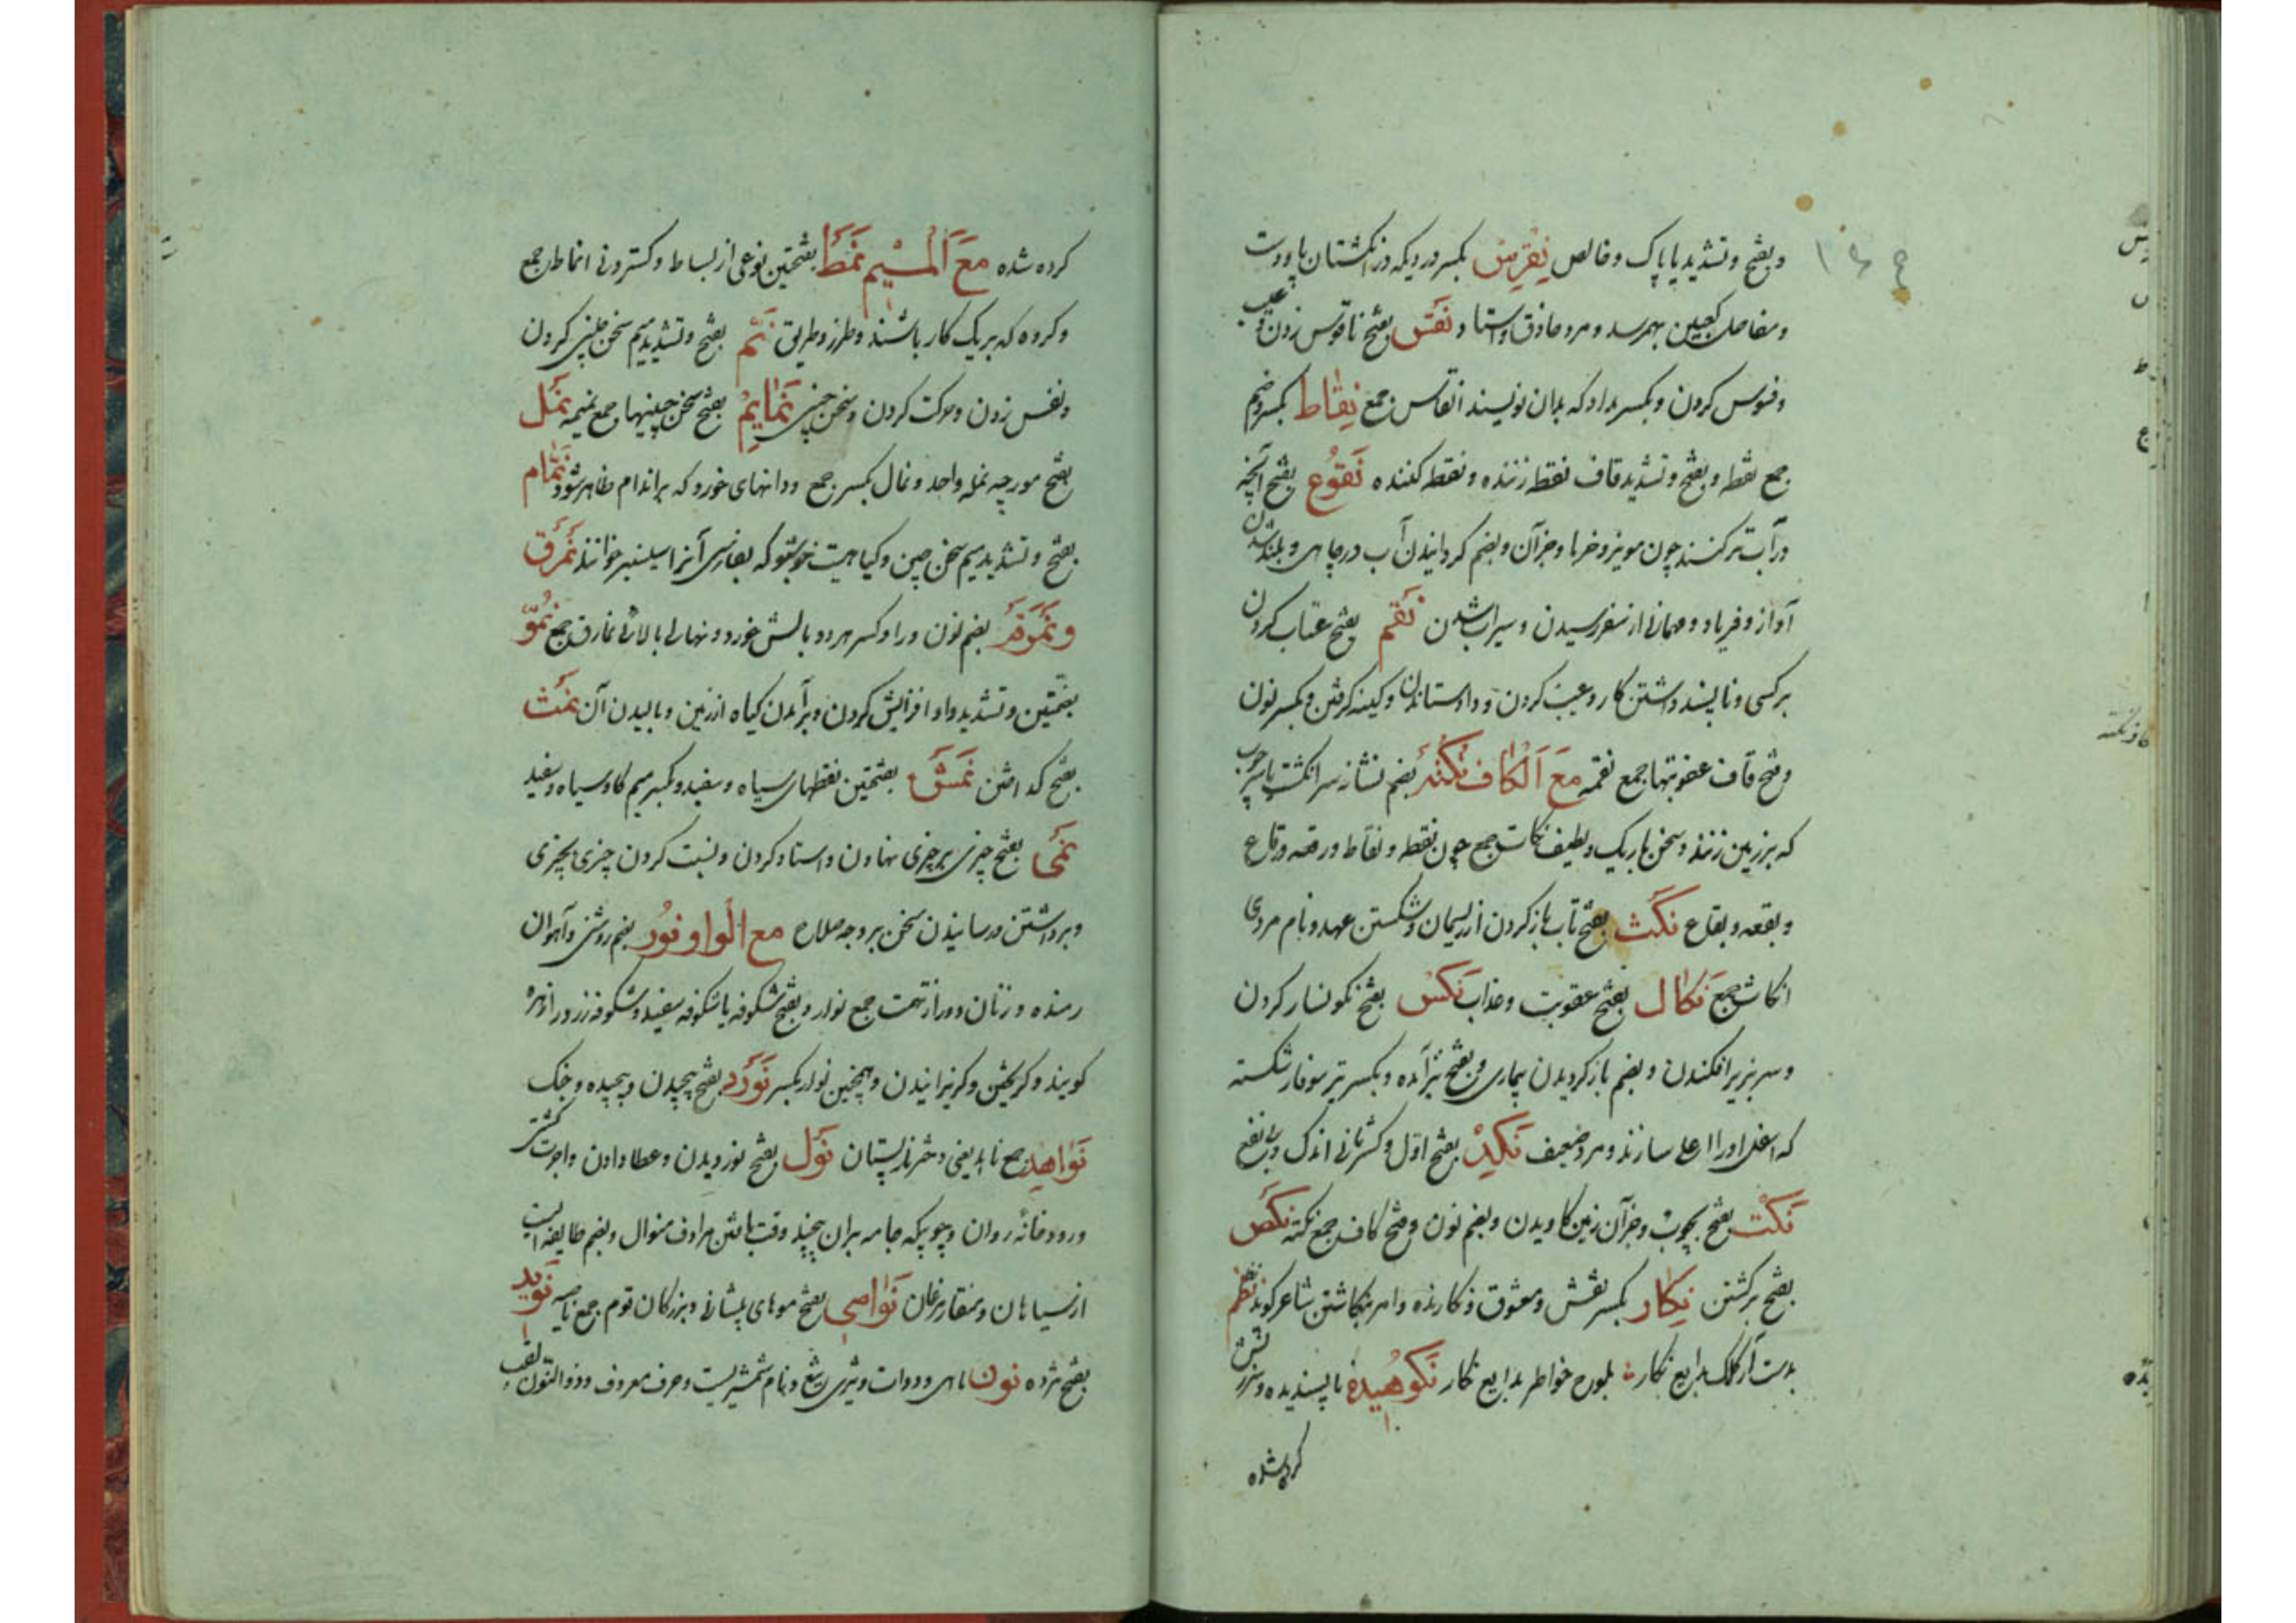 و بفتح و تشدید یا پاک و خالص نِقرِس بکسر دردیکه در انگشتان پا و دست
و مفاصل کعبین بهم رسد و مرد حاذق و استاد نَقس بفتح ناقوس زدن و عیب
و فسوس کردن و بکسر مداد که بدان نویسند انقاس جمع نِقاط بکسر و ضم
جمع نقط و بفتح و تشدید قاف نقط زننده و نقط کننده نَقُوع بفتح آنچه
در آب تر کنند چون مویز و خرما و جز آن و بضم گردانیدن آب در چاهی و بلند شدن
آواز و فریاد و مهمانی از سفر رسیدن و سیراب شدن نَقم بفتح عتاب کردن
بر کسی و ناپسند داشتن کار و عیب کردن و داد ستاندن و کینه گرفتن و بکسر نون
و فتح قاف عقوبتها جمع نقمه مَعَ اَلْکاف نُکتَه بضم نشان سر انگشت یا سر چوب
که بر زمین زنند و سخن باریک و لطیف نکات جمع چون نقطه و نقاط و رقعه و رقاع
و بقعه و بقاع نَکَث بفتح تاب باز کردن از ریسمان و شکستن عهد و نام مردی
انکاث جمع نَکال بفتح عقوبت و عذاب نَکس بفتح نگونسار کردن
و سر بزیر افکندن و بضم باز گردیدن بیماری و بفتح نیز آمده و بکسر تیر سوفار شکسته
که اسفل او را اعلی سازند و مرد ضعیف نَکِد بفتح اول و کسر ثانی اندک و بی نفع
نَکت بفتح بچوب و جز آن زمین کاویدن و بضم نون و فتح کاف جمع نکته نَکص
بفتح برگشتن نِکار بکسر نقش و معشوق و نکارنده و امر بنکاشتن شاعر گوید نظم
بدست آر کلک بدایع نکار بلوح خواطر بدایع نکار نَکوهیده ناپسندیده و سرزنش
کرده شده
کرده شده مَعَ اَلْمیم نَمَط بفتحتین نوعی از بساط و گستردنی انماط جمع
و گروه که بر یک کار باشند و طرز و طریق نَمّ بفتح و تشدید میم سخن چینی کردن
و نفس زدن و حرکت کردن و سخن چینی نَمایِم بفتح سخن چینیها جمع نمیمه نَمل
بفتح مورچه نمله واحد و نمال بکسر جمع و دانهای خورد که بر اندام ظاهر شود نَمّام
بفتح و تشدید میم سخن چین و گیاهیست خوشبو که بفارسی آنرا سیسنبر خوانند نَمَرق
و نَمرَقَه بضم نون و را و کسر هر دو بالش خورد و نهالی بالائی نمارق جمع نُمُوّ
بضمتین و تشدید واو افزایش کردن و برآمدن گیاه از زمین و بالیدن آن نَمث
بفتح گداختن نَمَش بفتحتین نقطهای سیاه و سفید و بکسر میم گاو سیاه و سفید
بفتح چیزی بر چیزی نهادن و استاد کردن و نسبت کردن چیزی بچیزی
و برداشتن و رسانیدن سخن بر وجه صلاح مع الواو نُور بضم روشنی و آهوان
رمنده و زنان دور از تهمت جمع نوار و بفتح شکوفه یا شکوفه سفید و شکوفه زرد را زهره
گویند و گریختن و گریزانیدن و همچنین نوار بکسر نَوَرد بفتح پیچیدن و پیچیده و جنگ
نَواهِد جمع ناهد یعنی دختر نار پستان نَول بفتح نوردیدن و عطا دادن و اجرت کشتی
و رودخانه روان و چوبیکه جامه بران پیچند وقت بافتن مرادف منوال و بضم طایفه ایست
از سیاهان و منقار مرغان نَواصی بفتح موهای پیشانی و بزرگان قوم جمع ناصیه نَوید
بفتح مژده نون ماهی و دوات و تیزی تیغ و نام شمشیریست و حرف معروف و ذوالنون لقب